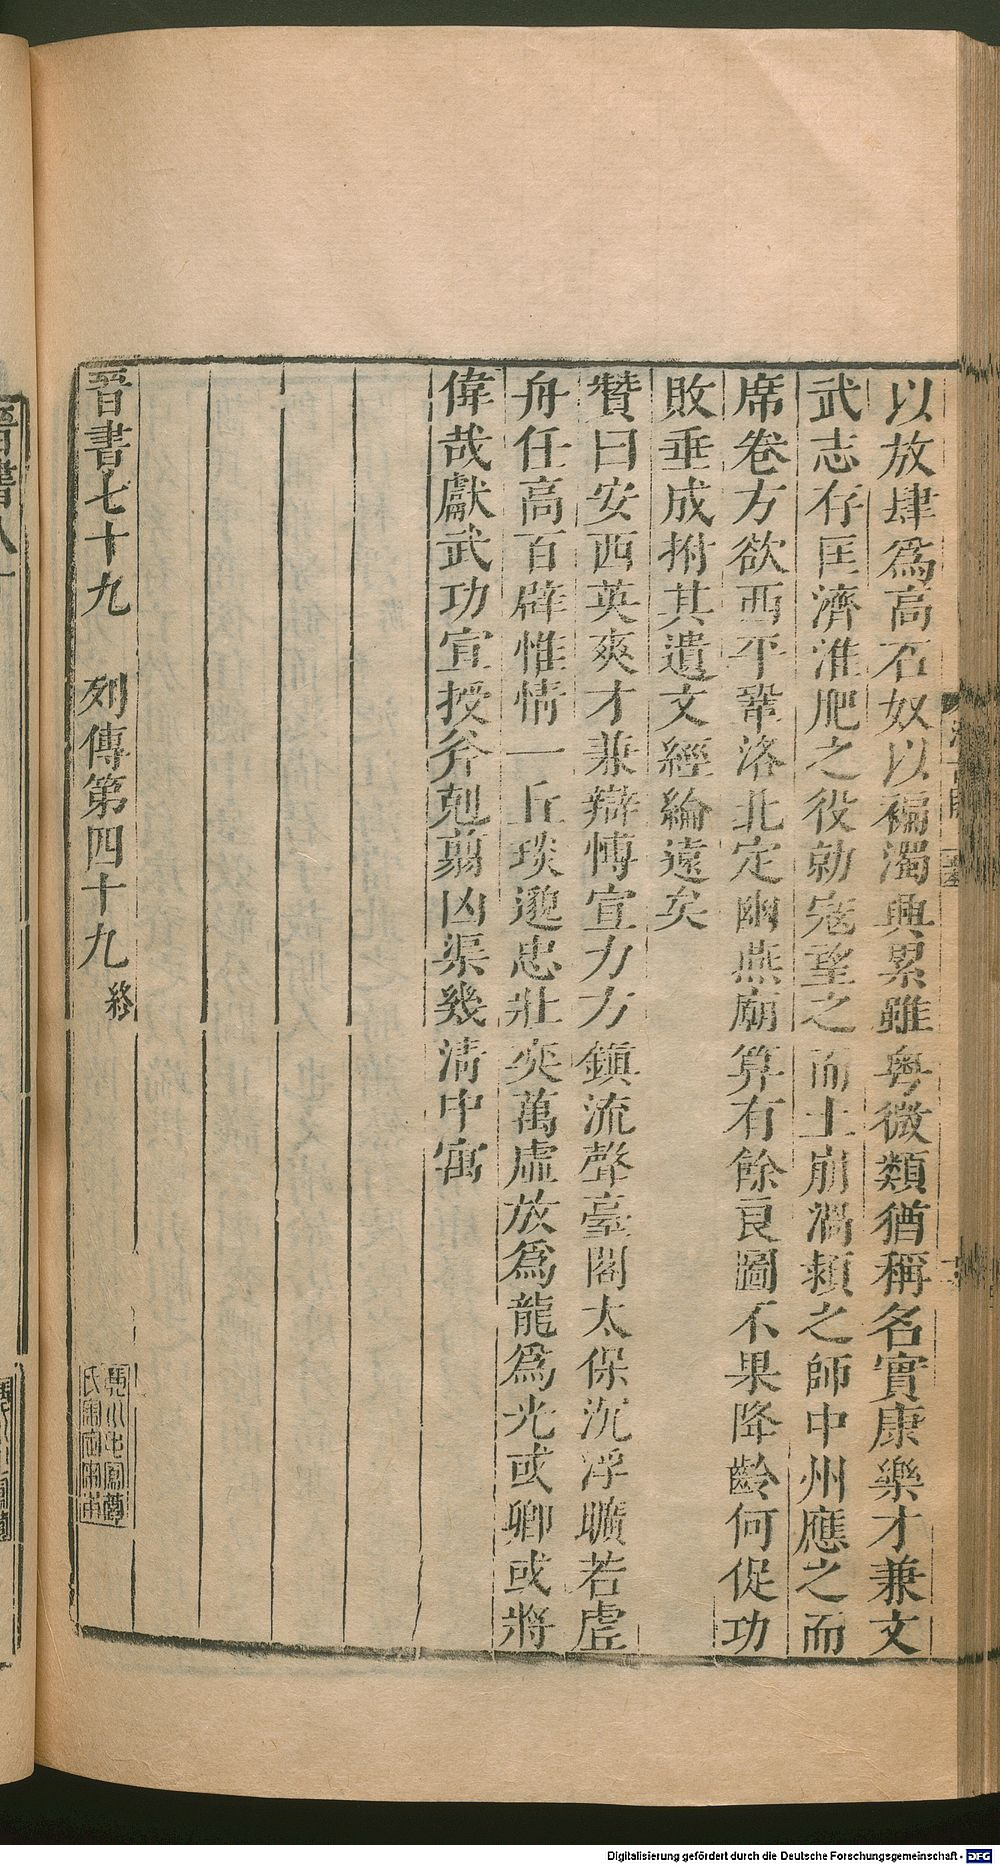 以放肆爲高石奴以褊濁興累雖粤微類猶稱名實康樂才兼文
武志存匡濟淮肥之役勍寇望之而土崩渦潁之師中州應之而
席卷方欲西平鞏洛北定幽燕廟算有餘良圖不果降齡何促功
敗垂成拊其遺文經綸遠矣
贊曰安西英爽才兼辯博宣力方鎮流聲臺閣太保沉浮曠若虛
舟任高百辟惟情一丘琰邈忠壯奕萬虛放爲龍爲光或卿或將
偉哉獻武功宣授斧剋翦凶渠幾清中寓
晉書七十九 列傳第四十九 終
Digitalisierung gefördert durch die Deutsche Forschungsgemeinschaft - DFG